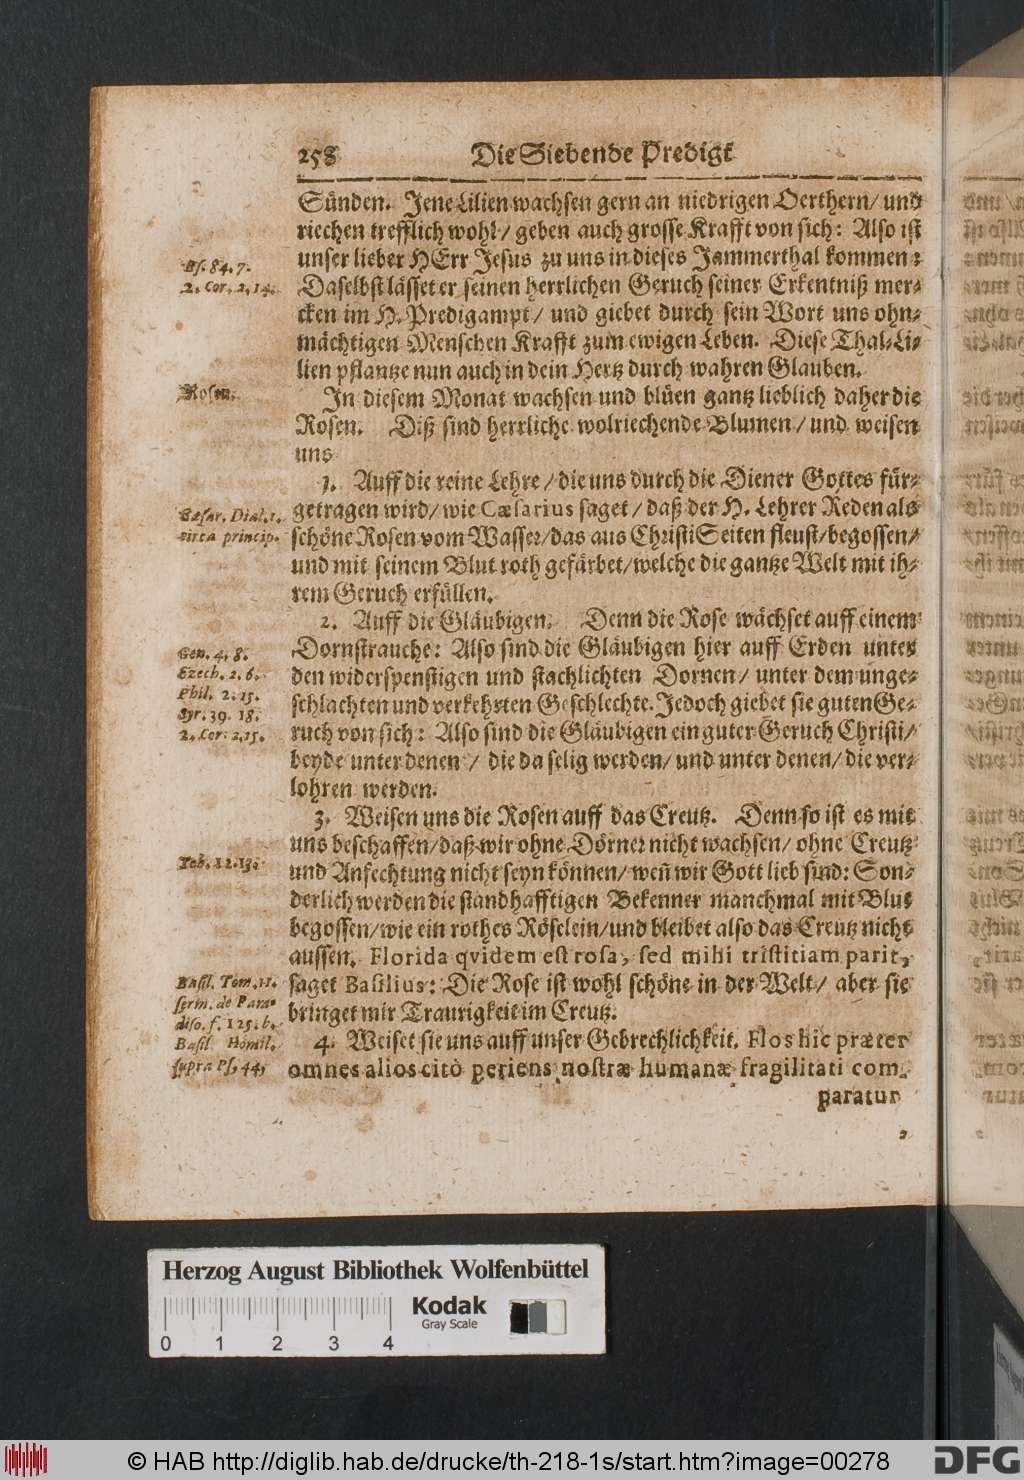 258 Die Siebende Predigt
Sünden. Jene Lilien wachsen gern an niedrigen Oerthern/ und
riechen trefflich wohl/ geben auch grosse Krafft von sich: Also ist
unser lieber HErr Jesus zu uns in dieses Jammerthal kommen:
Ps. 84. 7.
Daselbst lässet er seinen herrlichen Geruch seiner Erkentniß mer-
2. Cor. 2, 14.
cken im H. Predigampt/ und giebet durch sein Wort uns ohn-
mächtigen Menschen Krafft zum ewigen Leben. Diese Thal-Li-
lien pflantze nun auch in dein Hertz durch wahren Glauben.
Rosen.
In diesem Monat wachsen und blüen gantz lieblich daher die
Rosen. Diß sind herrliche wolriechende Blumen/ und weisen
uns
1. Auff die reine Lehre/ die uns durch die Diener Gottes für-
getragen wird/ wie Cæsarius saget/ daß der H. Lehrer Reden als
Cæsar. Dial. 1.
circa princip.
schöne Rosen vom Wasser/ das aus Christi Seiten fleust/ begossen/
und mit seinem Blut roth gefärbet/ welche die gantze Welt mit ih-
rem Geruch erfüllen.
2. Auff die Gläubigen. Denn die Rose wächset auff einem
Dornstrauche: Also sind die Gläubigen hier auff Erden unter
Gen. 4. 8.
Ezech. 2. 6.
den widerspenstigen und stachlichten Dornen/ unter dem unge-
Phil. 2. 15.
schlachten und verkehrten Geschlechte. Jedoch giebet sie guten Ge-
Syr. 39. 18.
2. Cor: 2, 15.
ruch von sich: Also sind die Gläubigen ein guter Geruch Christi/
beyde unter denen/ die da selig werden/ und unter denen/ die ver-
lohren werden.
3. Weisen uns die Rosen auff das Creutz. Denn so ist es mit
uns beschaffen/ daß wir ohne Dörner nicht wachsen/ ohne Creutz
Tob. 12. 13.
und Anfechtung nicht seyn können/ weñ wir Gott lieb sind: Son-
derlich werden die standhafftigen Bekenner manchmal mit Blut
begossen/ wie ein rothes Röselein/ und bleibet also das Creutz nicht
aussen. Florida qvidem est rosa, sed mihi tristitiam parit,
saget Basilius: Die Rose ist wohl schöne in der Welt/ aber sie
Basil. Tom. 11.
serm. de Para-
diso. f. 125. b.
bringet mir Traurigkeit im Creutz.
4. Weiset sie uns auff unser Gebrechlichkeit. Flos hic præter
Basil. Homil.
supra Ps. 44.
omnes alios citò periens nostræ humanæ fragilitati com-
paratur
Herzog August Bibliothek Wolfenbüttel
Kodak
Gray Scale
0 1 2 3 4
© HAB http://diglib.hab.de/drucke/th-218-1s/start.htm?image=00278
DFG